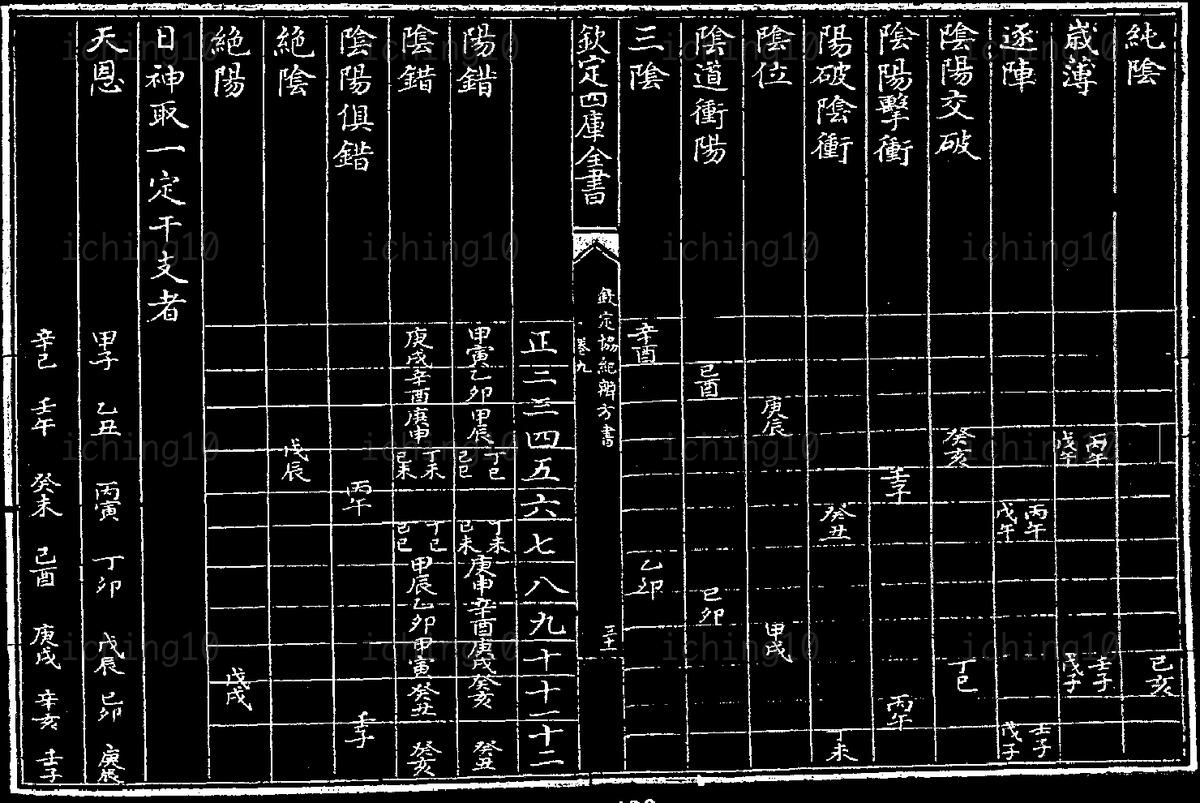 純陰 己亥
歲薄 丙午 戊午 壬子 戊子
逐陣 丙午 戊午 壬子 戊子
陰陽交破 癸亥 丁巳
陰陽擊衝 壬子 丙午
陽破陰衝 癸丑 丁未
陰位 庚辰 甲戌
陰道衝陽 己酉 己卯
三陰 辛酉 乙卯
欽定四庫全書 欽定協紀辨方書 卷九
正 二 三 四 五 六 七 八 九 十 十一 十二
陽錯 甲寅 乙卯 甲辰 丁巳 己巳 丁未 己未 庚申 辛酉 庚戌 癸亥 癸丑
陰錯 庚戌 辛酉 庚申 丁未 己未 丁巳 己巳 甲辰 乙卯 甲寅 癸丑 癸亥
陰陽俱錯 丙午 壬子
絶陰 戊辰
絶陽 戊戌
日神取一定干支者
天恩 甲子 乙丑 丙寅 丁卯 戊辰 己卯 庚辰
辛巳 壬午 癸未 己酉 庚戌 辛亥 壬子
iching10 iching10 iching10 iching10
iching10 iching10 iching10 iching10
iching10 iching10 iching10 iching10
iching10 iching10 iching10 iching10